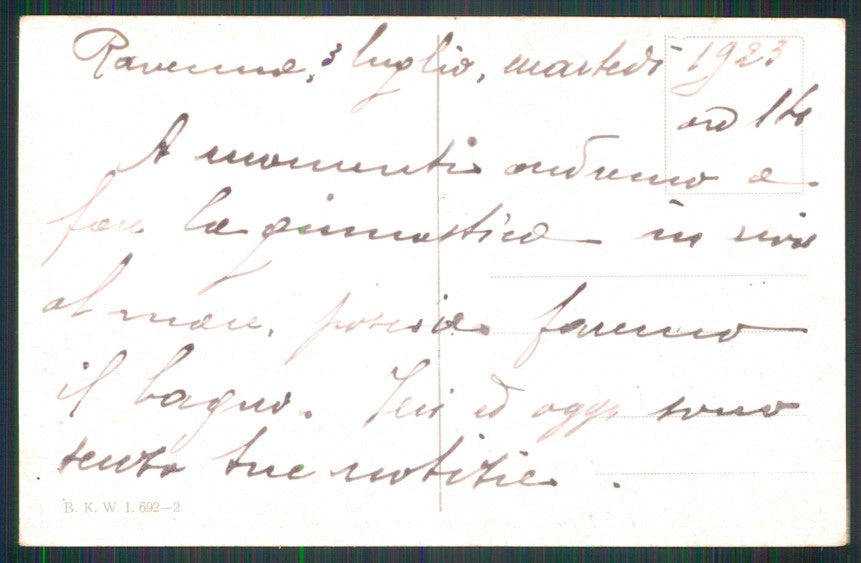 Ravenna, 3 luglio, martedì 1923
ore 16
A momenti andremo a
fare la ginnastica in riva
al mare, poscia faremo
il bagno. Ieri ed oggi sono
senza tue notizie.
B. K. W. I. 692—2